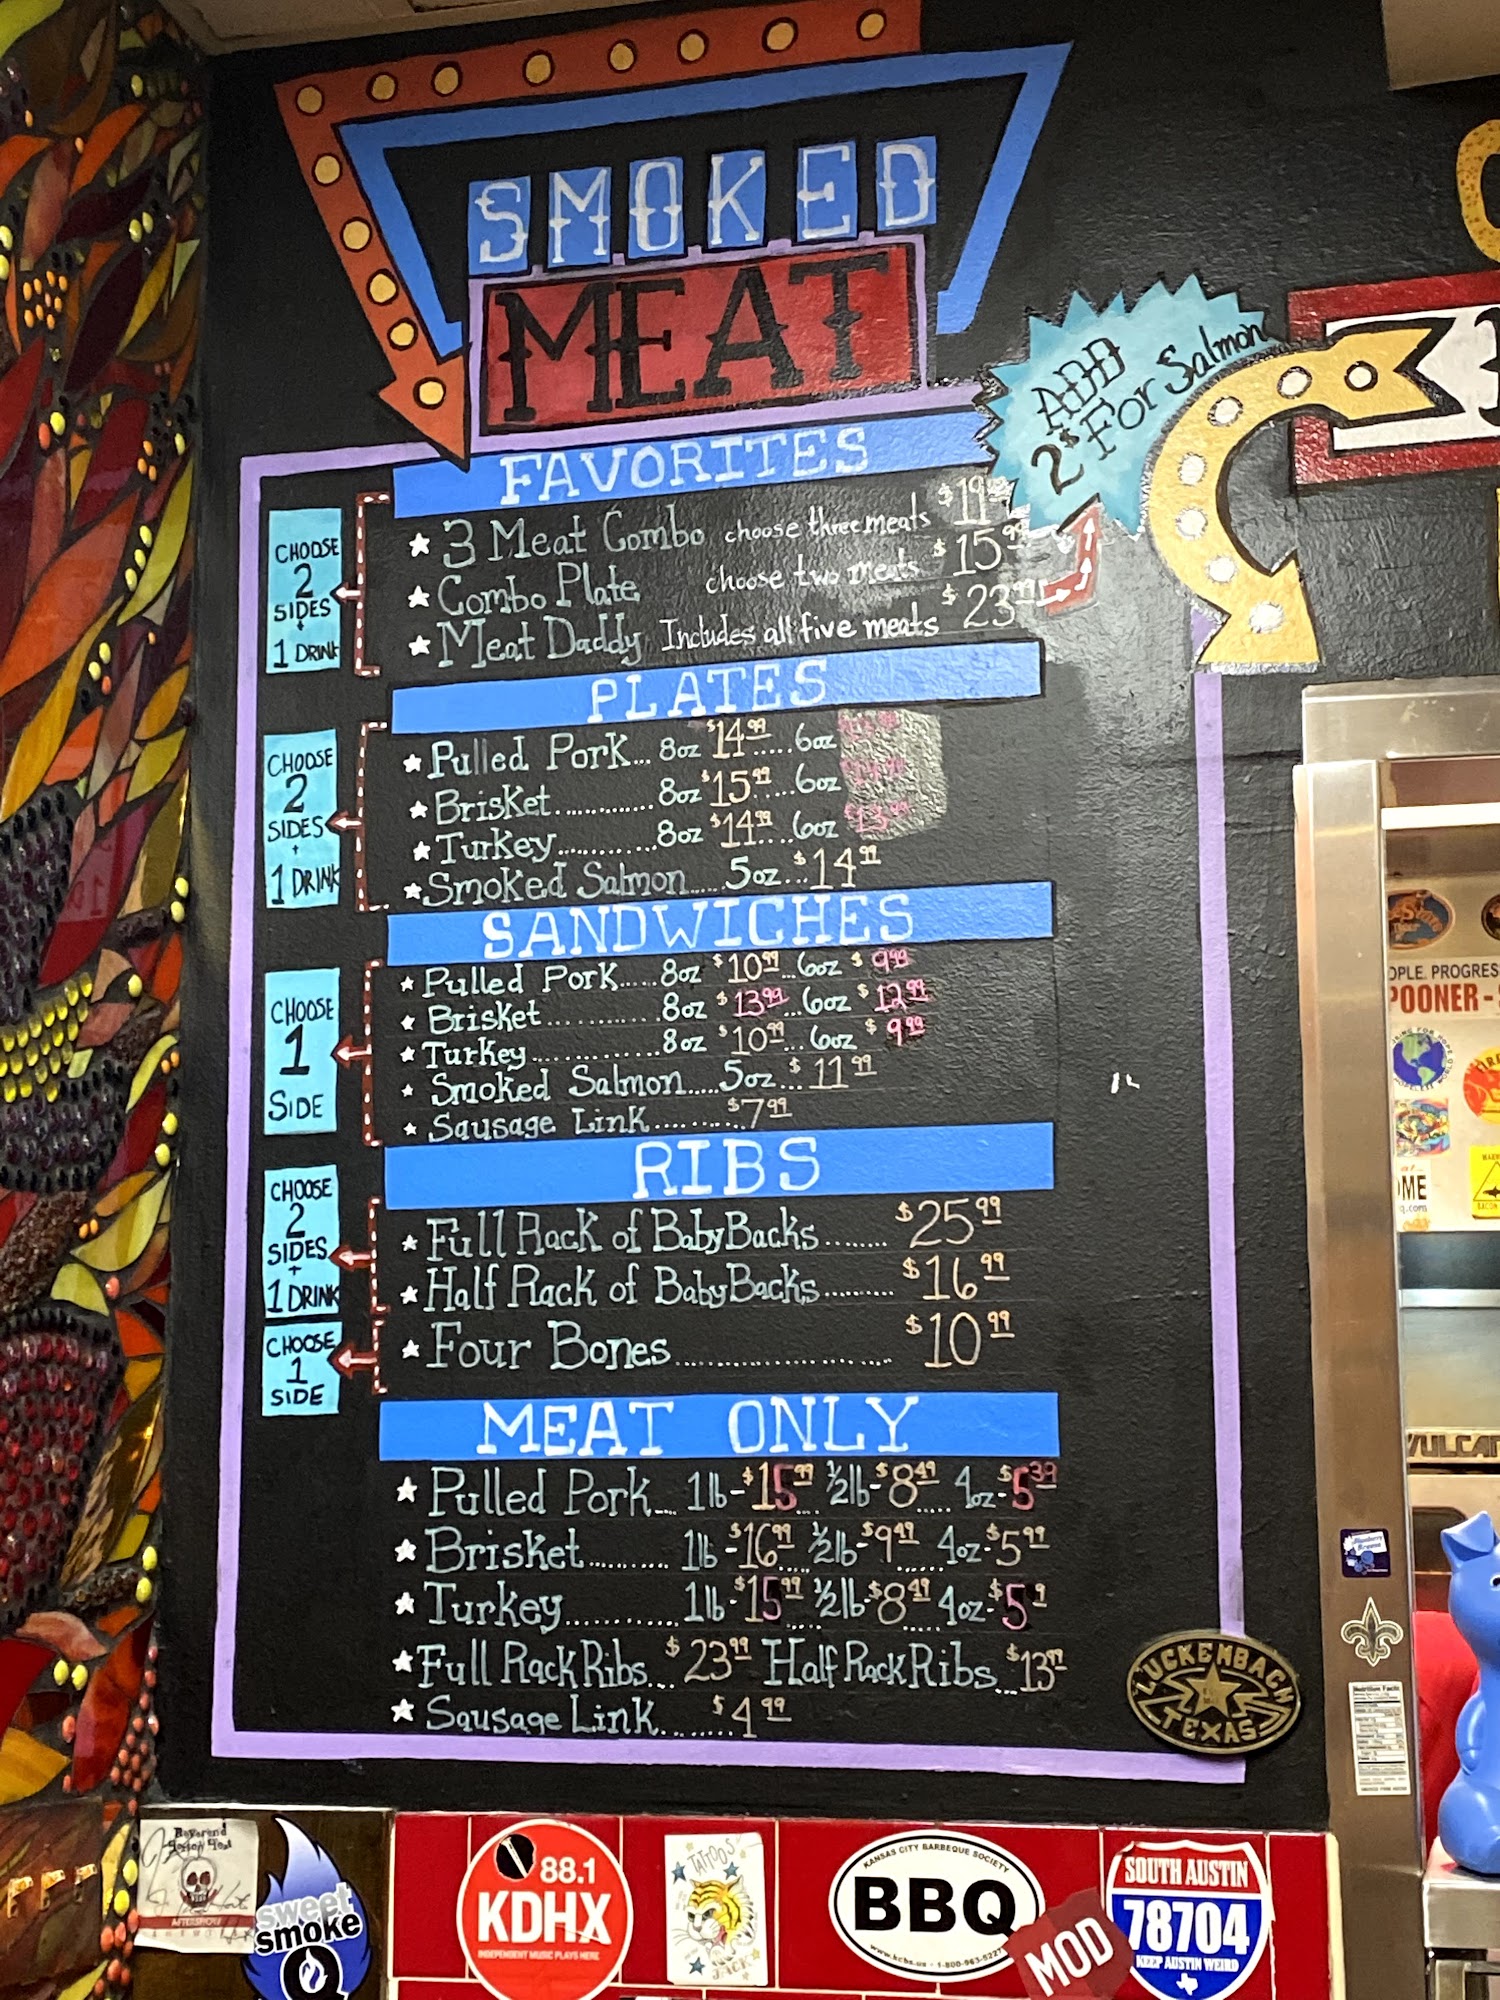 SMOKED
MEAT
ADD
2$ For Salmon
FAVORITES
CHOOSE
2
SIDES
+
1 DRINK
★ 3 Meat Combo choose three meats $19
★ Combo Plate choose two meats $15.99
★ Meat Daddy Includes all five meats $23.99
PLATES
CHOOSE
2
SIDES
+
1 DRINK
★ Pulled Pork... 8oz $14.99.....6oz
★ Brisket............. 8oz $15.99.....6oz
★ Turkey............ 8oz $14.99....6oz $13.99
★ Smoked Salmon.....5oz...$14.99
SANDWICHES
CHOOSE
1
SIDE
★ Pulled Pork.....8oz $10.99...6oz $9.99
★ Brisket............8oz $13.99...6oz $12.99
★ Turkey..............8oz $10.99...6oz $9.99
★ Smoked Salmon.....5oz...$11.99
★ Sausage Link...........$7.99
RIBS
CHOOSE
2
SIDES
+
1 DRINK
★ Full Rack of Baby Backs........ $25.99
★ Half Rack of Baby Backs.......... $16.99
CHOOSE
1
SIDE
★ Four Bones........................ $10.99
MEAT ONLY
★ Pulled Pork... 1lb-$15.99... ½lb-$8.49..... 4oz-$5.39
★ Brisket.......... 1lb-$16.99.... ½lb-$9.49...... 4oz-$5.99
★ Turkey............ 1lb-$15.99.... ½lb-$8.49..... 4oz-$5.9
★ Full Rack Ribs... $23.99 Half Rack Ribs...$13.99
★ Sausage Link....... $4.99
LUCKENBACH
TEXAS
OPLE. PROGRES
POONER -
VULCAN
Nutrition Facts
Reverend
sweet
smoke
Q
88.1
KDHX
INDEPENDENT MUSIC PLAYS HERE
TATOOS
KANSAS CITY BARBEQUE SOCIETY
BBQ
MOD
SOUTH AUSTIN
78704
KEEP AUSTIN WEIRD